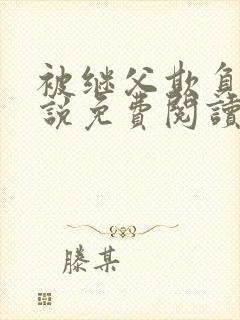 被继父欺负
說免費閱讀
滕某